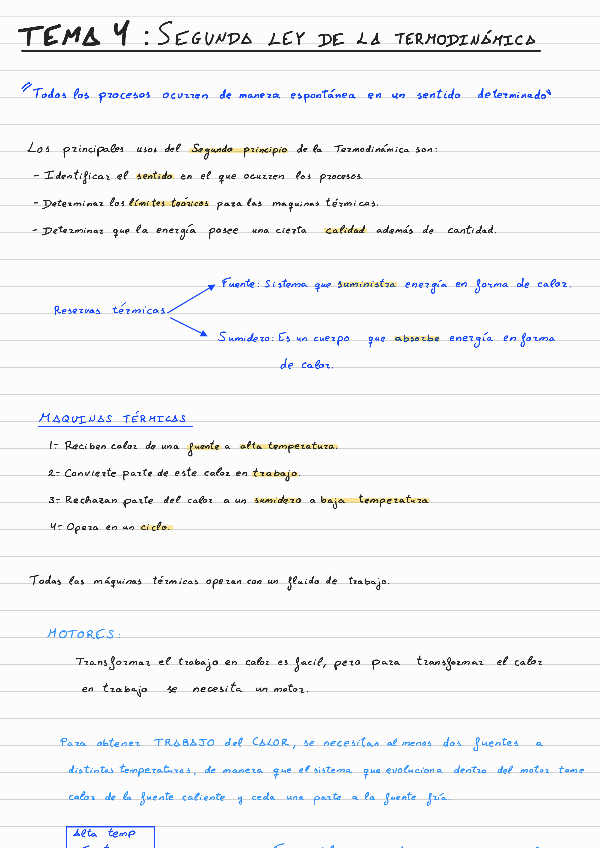 TEMA 4: SEGUNDA LEY DE LA TERMODINÁMICA
"Todos los procesos ocurren de manera espontánea en un sentido determinado"
Los principales usos del Segundo principio de la Termodinámica son:
- Identificar el sentido en el que ocurren los procesos.
- Determinar los límites teóricos para las maquinas térmicas.
- Determinar que la energía posee una cierta calidad además de cantidad.
Fuente: Sistema que suministra energía en forma de calor.
Reservas térmicas
Sumidero: Es un cuerpo que absorbe energía en forma
de calor.
MAQUINAS TÉRMICAS
1- Reciben calor de una fuente a alta temperatura.
2- Convierte parte de este calor en trabajo.
3- Rechazan parte del calor a un sumidero a baja temperatura
4- Opera en un ciclo.
Todas las máquinas térmicas operan con un fluido de trabajo.
MOTORES:
Transformar el trabajo en calor es facil, pero para transformar el calor
en trabajo se necesita un motor.
Para obtener TRABAJO del CALOR, se necesitan al menos dos fuentes a
distintas temperaturas, de manera que el sistema que evoluciona dentro del motor tome
calor de la fuente caliente y ceda una parte a la fuente fría.
Alta temp